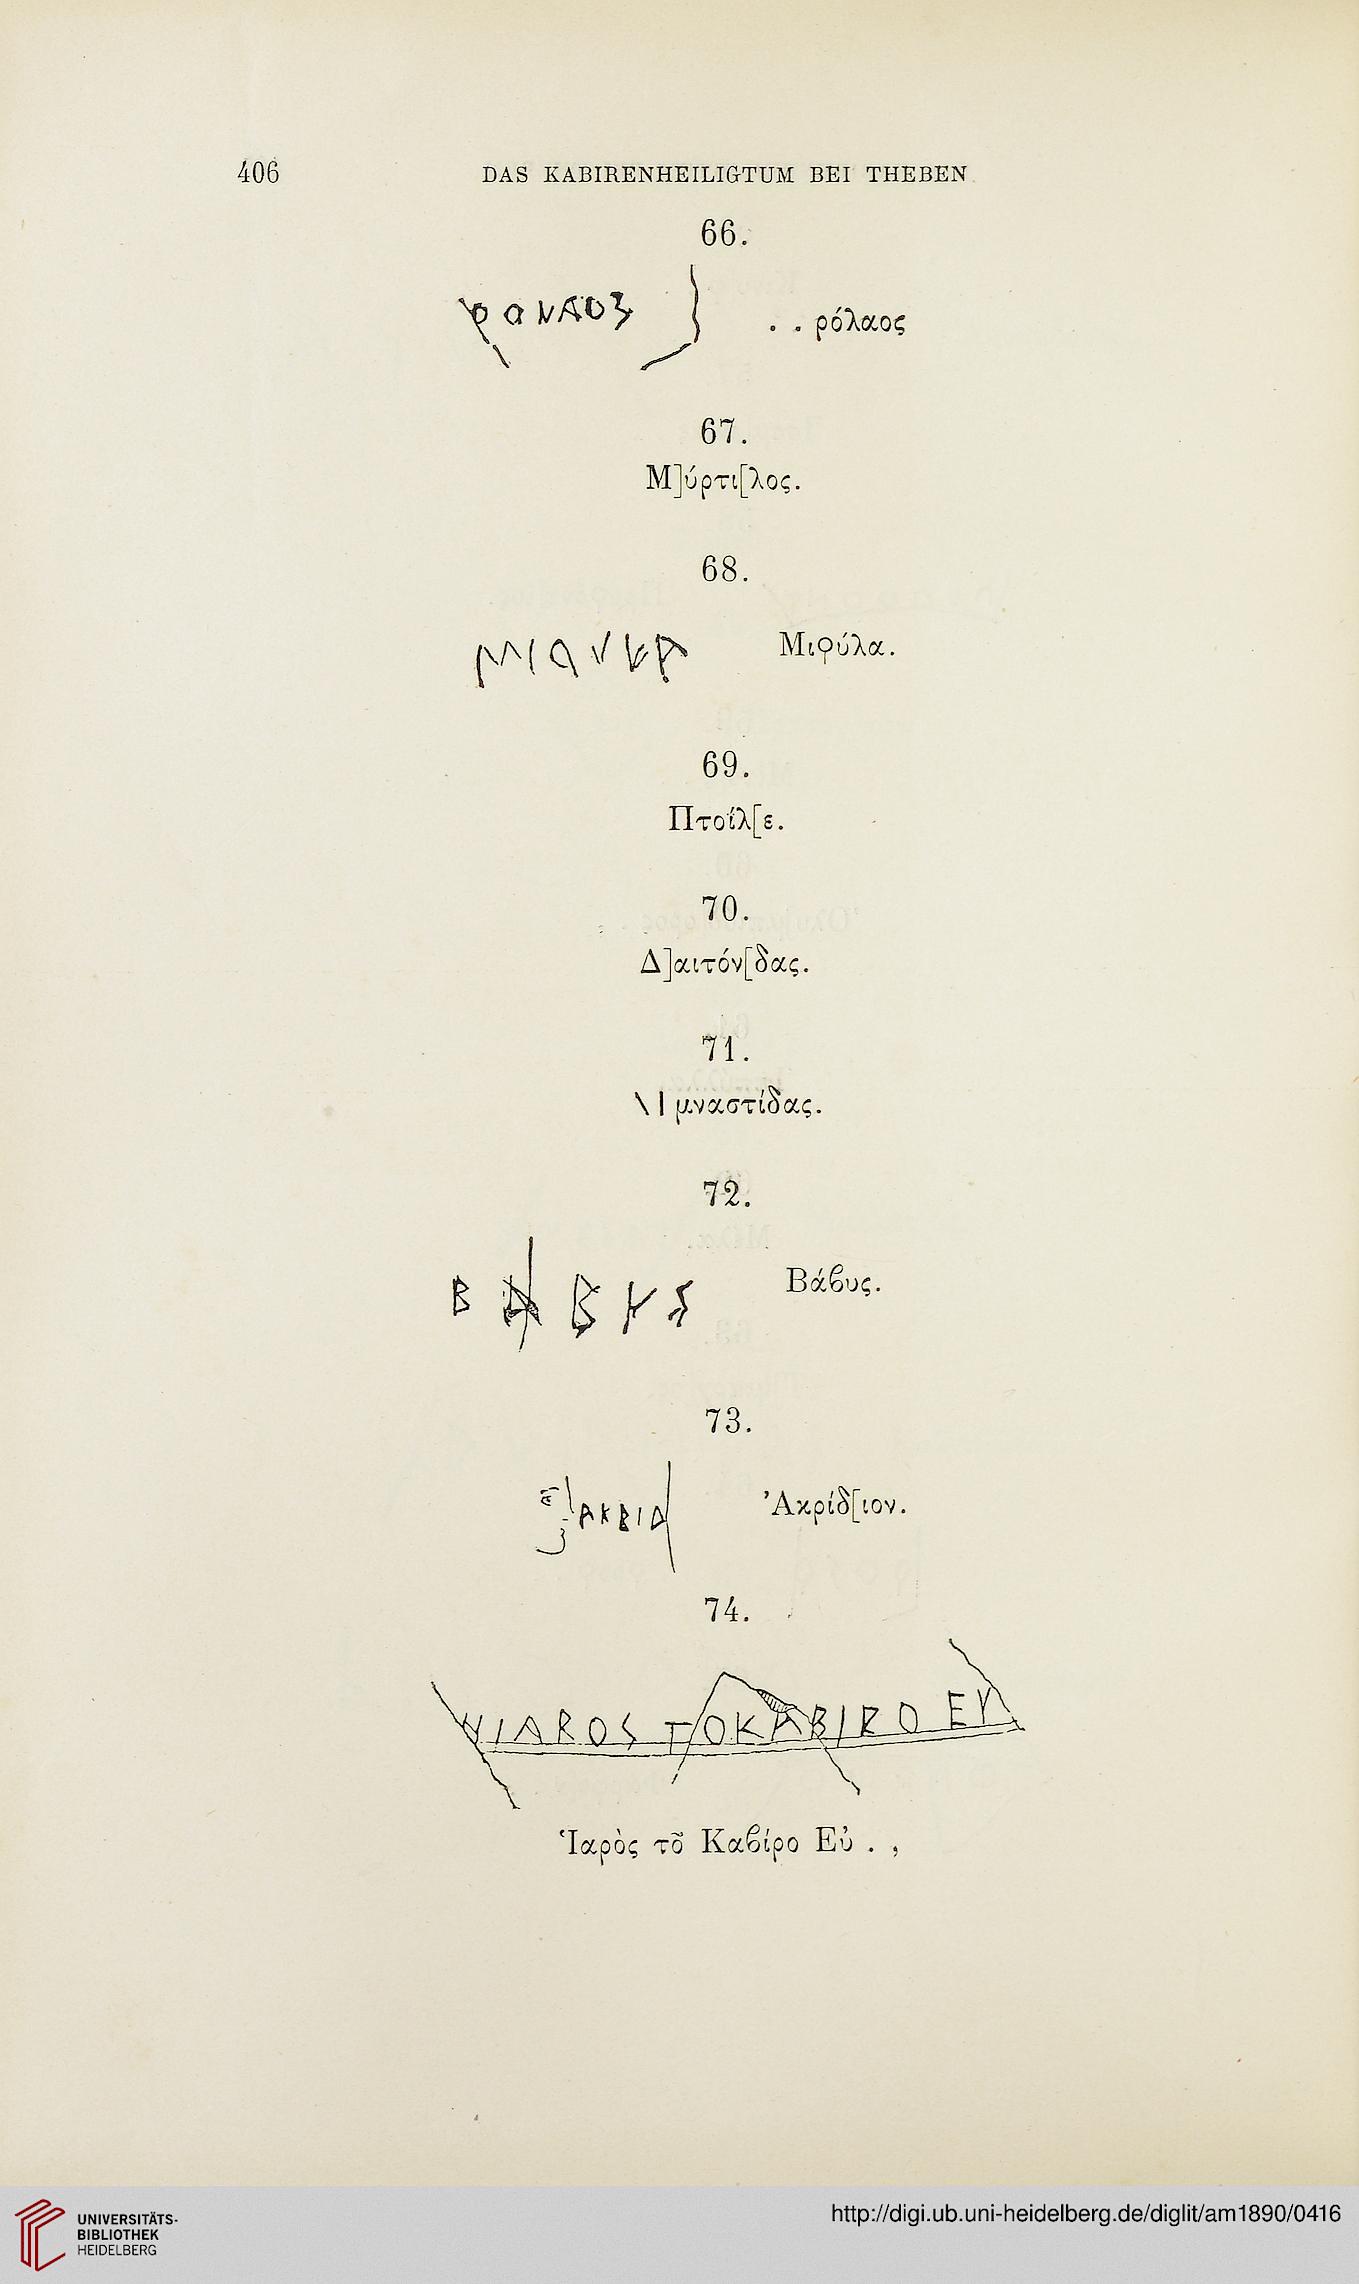 406 DAS KABIRENHEILIGTUM BEI THEBEN
66.
. . ρόλαος
67.
Μ]ύρτι[λος.
68.
Μιϙύλα.
69.
Πτοίλ[ε.
70.
Δ]αιτόν[δας.
71.
\ Ι μναστίδας.
72.
Βάϐυς.
73.
Ἀκρίδ[ιον.
74.
ΙΑROS TOKABIRO EV
Ἱαρὸς τõ Καϐίρο Εὐ . ,
UNIVERSITÄTS-
BIBLIOTHEK
HEIDELBERG
http://digi.ub.uni-heidelberg.de/diglit/am1890/0416